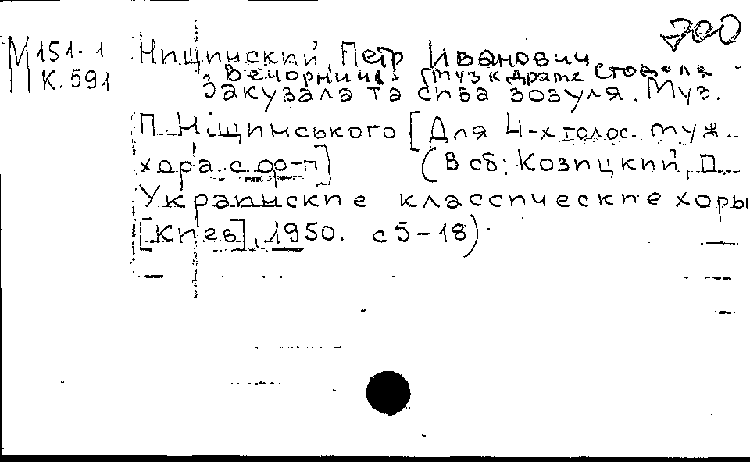 200
М 151-1 Нищинский, Петр Иванович
К.591 Вечорниці. Муз к драме Стодоля
Закувала та сива зозуля. Муз.
П. Ніщинського [Для 4-х голос. муж.
хора с ф-п] (В сб: Козицкий, П.
Украинские классические хоры
[Киев], 1950. с 5-18)